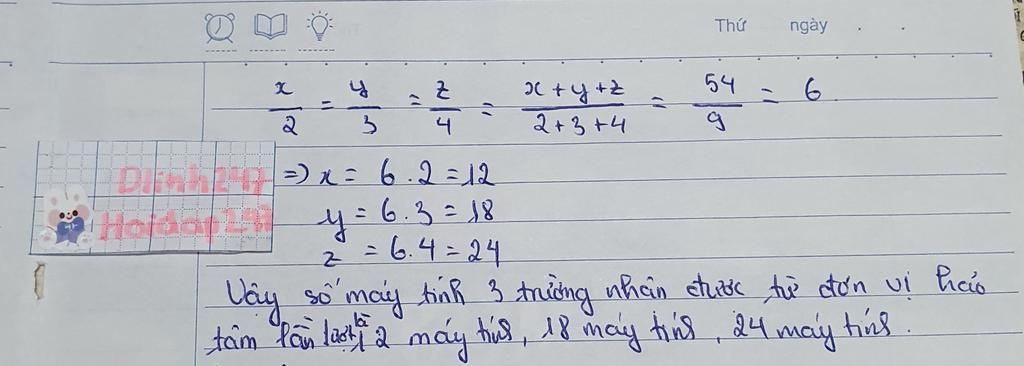 Thứ ngày . .
x/2 = y/3 = z/4 = x+y+z/2+3+4 = 54/9 = 6
Dlinh247
Hoidap247
=> x = 6.2 = 12
y = 6.3 = 18
z = 6.4 = 24
Vậy số máy tính 3 trường nhận được từ đơn vị hảo
tâm lần lượt là 12 máy tính, 18 máy tính, 24 máy tính.